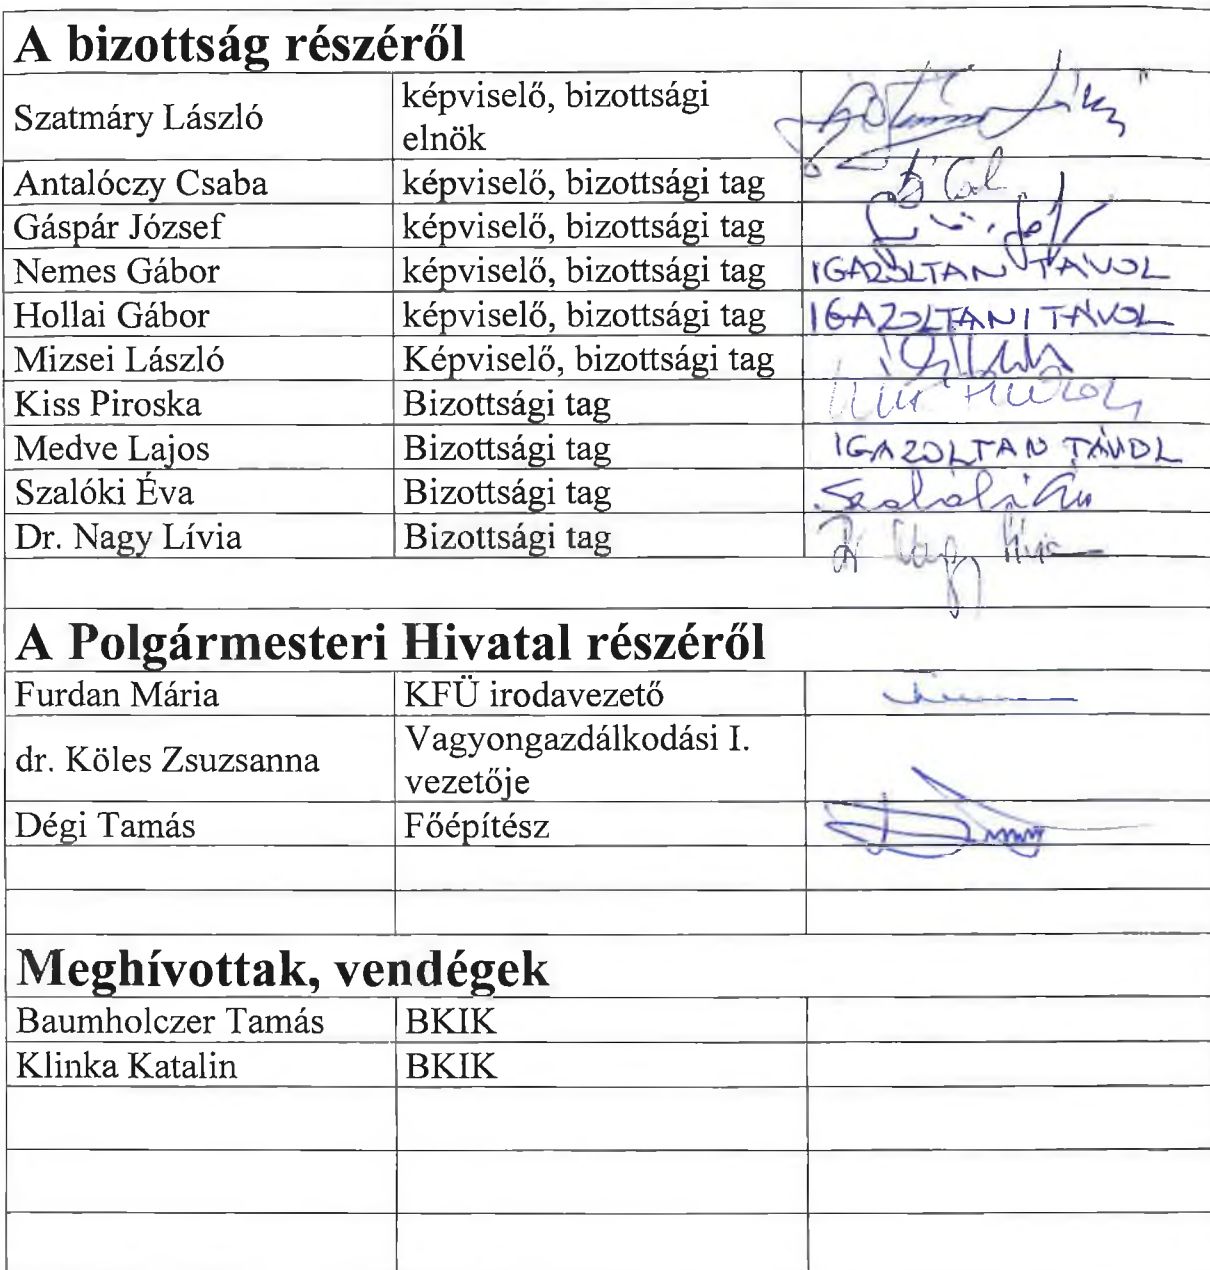 A bizottság részéről
Szatmáry László képviselő, bizottsági
elnök
Antalóczy Csaba képviselő, bizottsági tag
Gáspár József képviselő, bizottsági tag
Nemes Gábor képviselő, bizottsági tag IGAZOLTAN TÁVOL
Hollai Gábor képviselő, bizottsági tag IGAZOLTAN TÁVOL
Mizsei László Képviselő, bizottsági tag
Kiss Piroska Bizottsági tag
Medve Lajos Bizottsági tag IGAZOLTAN TÁVOL
Szalóki Éva Bizottsági tag Szalóki Éva
Dr. Nagy Lívia Bizottsági tag Dr Nagy Lívia
A Polgármesteri Hivatal részéről
Furdan Mária KFÜ irodavezető
dr. Köles Zsuzsanna Vagyongazdálkodási I.
vezetője
Dégi Tamás Főépítész
Meghívottak, vendégek
Baumholczer Tamás BKIK
Klinka Katalin BKIK